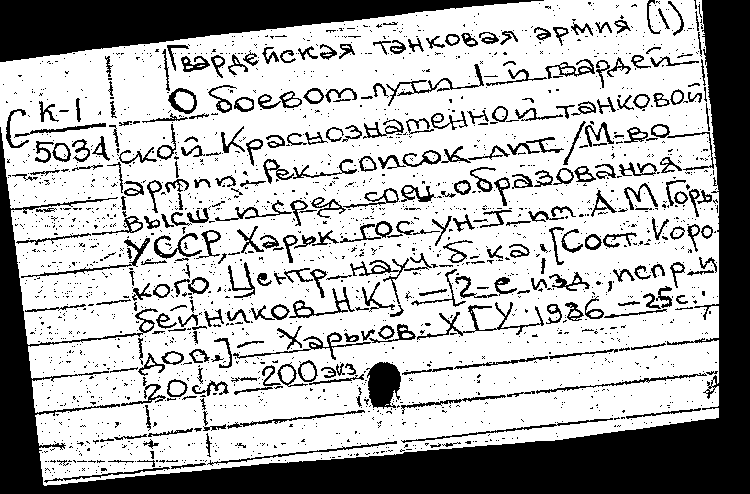 Гвардейская танковая армия (1)
К-1 О боевом пути 1-й гвардей-
С 5034 ской Краснознаменной танковой
армии: Рек. список лит / М-во
высш. и сред. спец. образования
УССР, Харьк. гос. ун-т им. А.М.Горь
кого. Центр. науч. б-ка; [Сост. Коро
бейников Н.К.] — [2-е изд., испр. и
доп.] — Харьков: ХГУ, 1986. — 25с.;
20см. — 200 экз